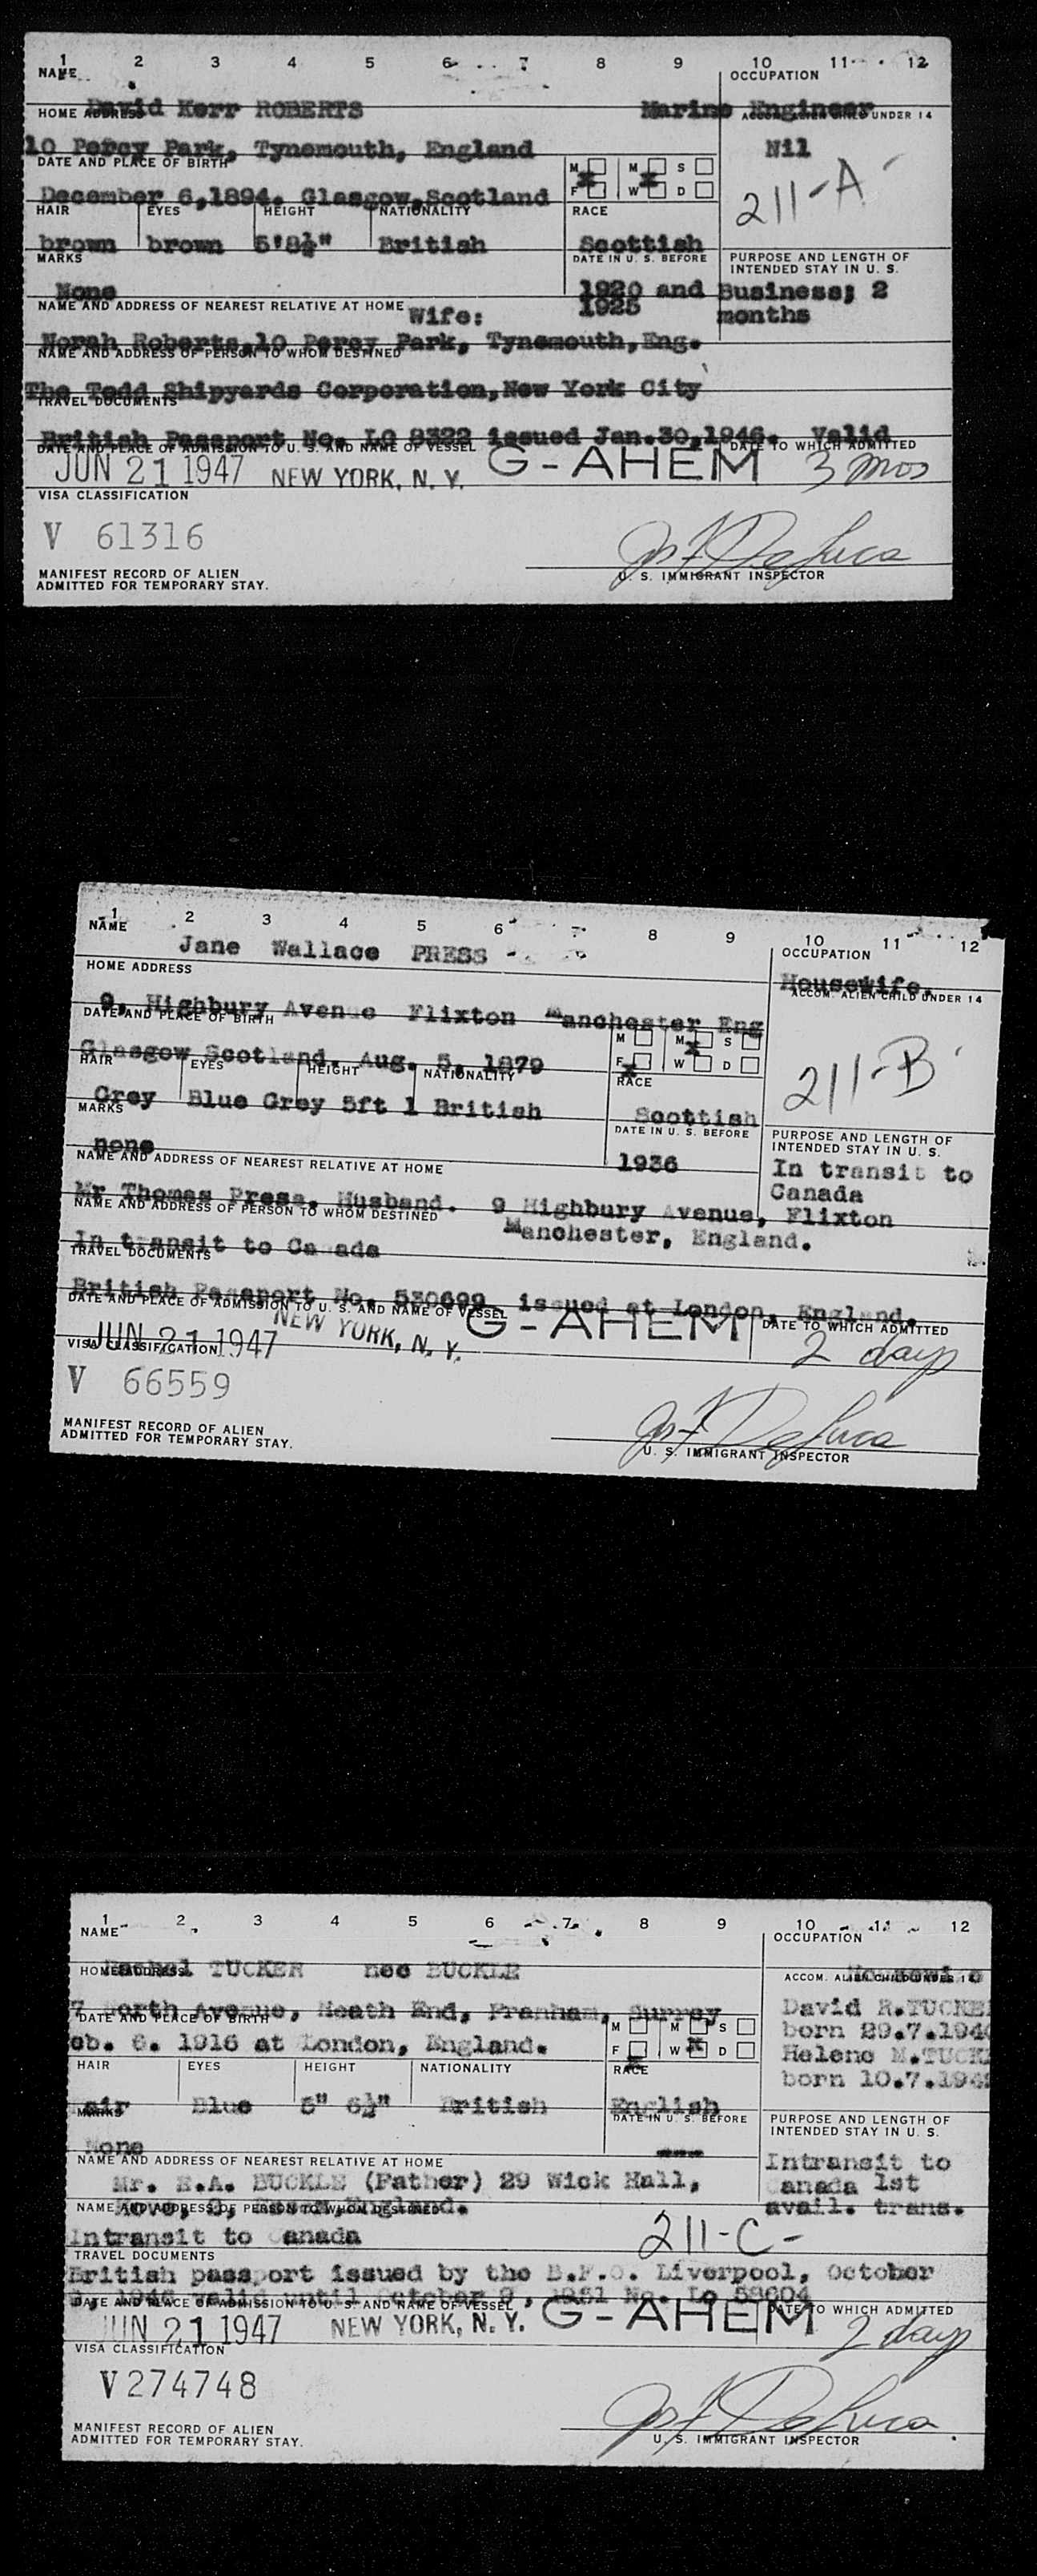 1 2 3 4 5 6 7 8 9 10 11 12
NAME OCCUPATION
David Kerr ROBERTS Marine Engineer
HOME ADDRESS ACCOM. ALIEN CHILD UNDER 14
10 Percy Park, Tynemouth, England Nil
DATE AND PLACE OF BIRTH M M S
December 6,1894. Glasgow,Scotland F W D 211-A
HAIR EYES HEIGHT NATIONALITY RACE
brown brown 5'8½" British Scottish
MARKS DATE IN U. S. BEFORE PURPOSE AND LENGTH OF INTENDED STAY IN U. S.
None 1920 and 1925 Business; 2 months
NAME AND ADDRESS OF NEAREST RELATIVE AT HOME Wife:
Norah Roberts,10 Percy Park, Tynemouth,Eng.
NAME AND ADDRESS OF PERSON TO WHOM DESTINED
The Todd Shipyards Corporation,New York City
TRAVEL DOCUMENTS
British Passport No. LO 8322 issued Jan.30,1946. Valid
DATE AND PLACE OF ADMISSION TO U. S. AND NAME OF VESSEL DATE TO WHICH ADMITTED
JUN 21 1947 NEW YORK, N. Y. G-AHEM 3 mos
VISA CLASSIFICATION
V 61316
U. S. IMMIGRANT INSPECTOR
MANIFEST RECORD OF ALIEN
ADMITTED FOR TEMPORARY STAY.
1 2 3 4 5 6 7 8 9 10 11 12
NAME OCCUPATION
Jane Wallace PRESS Housewife.
HOME ADDRESS ACCOM. ALIEN CHILD UNDER 14
9, Highbury Avenue Flixton Manchester Eng
DATE AND PLACE OF BIRTH M M S
Glasgow Scotland. Aug. 5, 1879 F W D 211-B
HAIR EYES HEIGHT NATIONALITY RACE
Grey Blue Grey 5ft 1 British Scottish
MARKS DATE IN U. S. BEFORE PURPOSE AND LENGTH OF INTENDED STAY IN U. S.
none 1936 In transit to Canada
NAME AND ADDRESS OF NEAREST RELATIVE AT HOME
Mr Thomas Press, Husband. 9 Highbury Avenue, Flixton
Manchester, England.
NAME AND ADDRESS OF PERSON TO WHOM DESTINED
In transit to Canada
TRAVEL DOCUMENTS
British Passport No. 530699 issued at London, England.
DATE AND PLACE OF ADMISSION TO U. S. AND NAME OF VESSEL DATE TO WHICH ADMITTED
JUN 21 1947 NEW YORK, N. Y. G-AHEM 2 days
VISA CLASSIFICATION
V 66559
U. S. IMMIGRANT INSPECTOR
MANIFEST RECORD OF ALIEN
ADMITTED FOR TEMPORARY STAY.
1 2 3 4 5 6 7 8 9 10 11 12
NAME OCCUPATION
TUCKER nee BUCKLE
HOME ADDRESS ACCOM. ALIEN CHILD UNDER 14
7 North Avenue, Heath End, Franham, Surrey David R.TUCKE
DATE AND PLACE OF BIRTH M M S born 29.7.194
eb. 6. 1916 at London, England. F W D Helene M.TUCK
HAIR EYES HEIGHT NATIONALITY RACE born 10.7.194
air Blue 5" 6½" British English
MARKS DATE IN U. S. BEFORE PURPOSE AND LENGTH OF INTENDED STAY IN U. S.
None --- Intransit to
NAME AND ADDRESS OF NEAREST RELATIVE AT HOME anada 1st
Mr. E.A. BUCKLE (Father) 29 Wick Hall, avail. trans.
Hove, England.
NAME AND ADDRESS OF PERSON TO WHOM DESTINED
Intransit to anada 211-C-
TRAVEL DOCUMENTS
British passport issued by the B.P.O. Liverpool, October
1946 valid until October 9, 1951 No. Lo 58604
DATE AND PLACE OF ADMISSION TO U. S. AND NAME OF VESSEL DATE TO WHICH ADMITTED
JUN 21 1947 NEW YORK, N. Y. G-AHEM 2 days
VISA CLASSIFICATION
V274748
U. S. IMMIGRANT INSPECTOR
MANIFEST RECORD OF ALIEN
ADMITTED FOR TEMPORARY STAY.